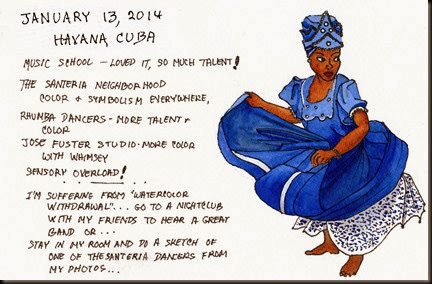 JANUARY 13, 2014
HAVANA, CUBA
MUSIC SCHOOL - LOVED IT, SO MUCH TALENT!
THE SANTERIA NEIGHBORHOOD
COLOR & SYMBOLISM EVERYWHERE,
RHUMBA DANCERS - MORE TALENT &
COLOR
JOSE FUSTER STUDIO - MORE COLOR
WITH WHIMSEY
SENSORY OVERLOAD!
I'M SUFFERING FROM "WATERCOLOR
WITHDRAWAL"... GO TO A NIGHTCLUB
WITH MY FRIENDS TO HEAR A GREAT
BAND OR...
STAY IN MY ROOM AND DO A SKETCH OF
ONE OF THE SANTERIA DANCERS FROM
MY PHOTOS...